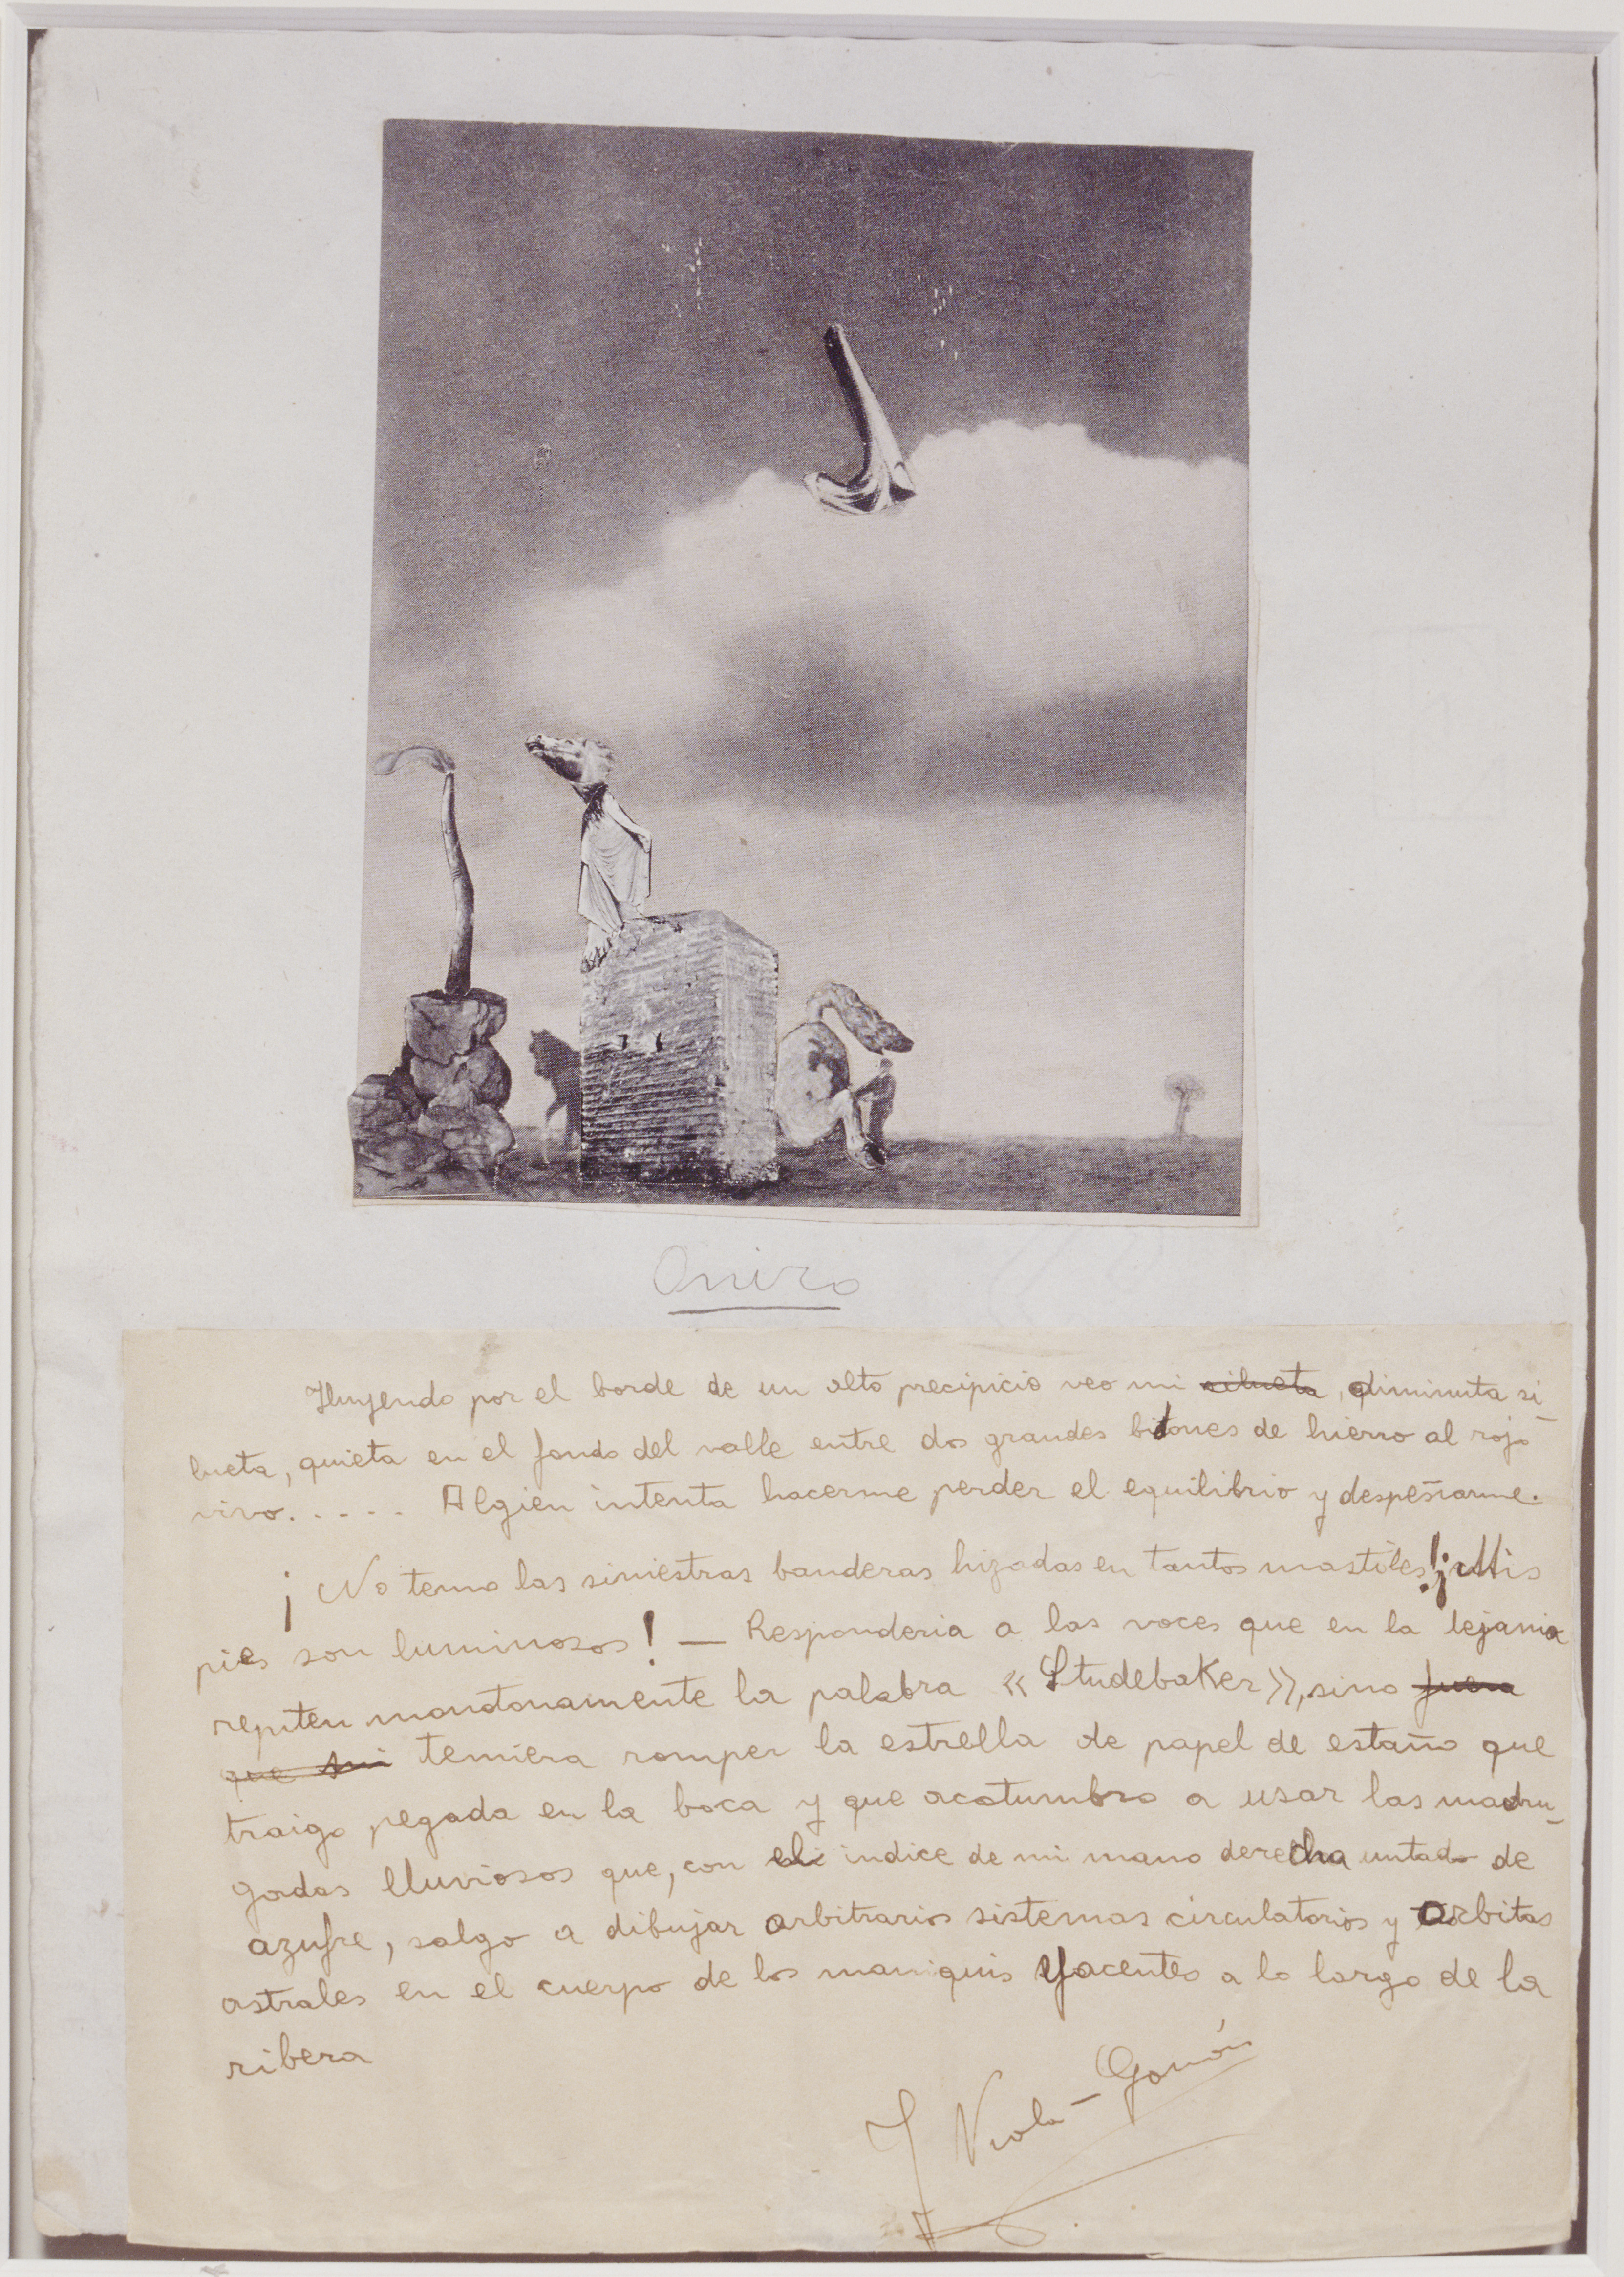 Oniro
Huyendo por el borde de un alto precipicio veo mi silueta, diminuta si-
lueta, quieta en el fondo del valle entre dos grandes bidones de hierro al rojo
vivo..... Algien intenta hacerme perder el equilibrio y despeñarme.
¡No temo las siniestras banderas hizadas en tantos mastiles! ¡Mis
pies son luminosos! — Responderia a las voces que en la lejania
repiten monotonamente la palabra «Studebaker», sino fuera
que mi temiera romper la estrella de papel de estaño que
traigo pegada en la boca y que acotumbro a usar las madru-
gadas lluviosos que, con el indice de mi mano derecha untado de
azufre, salgo a dibujar arbitrarios sistemas circulatorios y orbitas
astrales en el cuerpo de los maniquis yacentes a lo largo de la
ribera
J Viola-Gamón